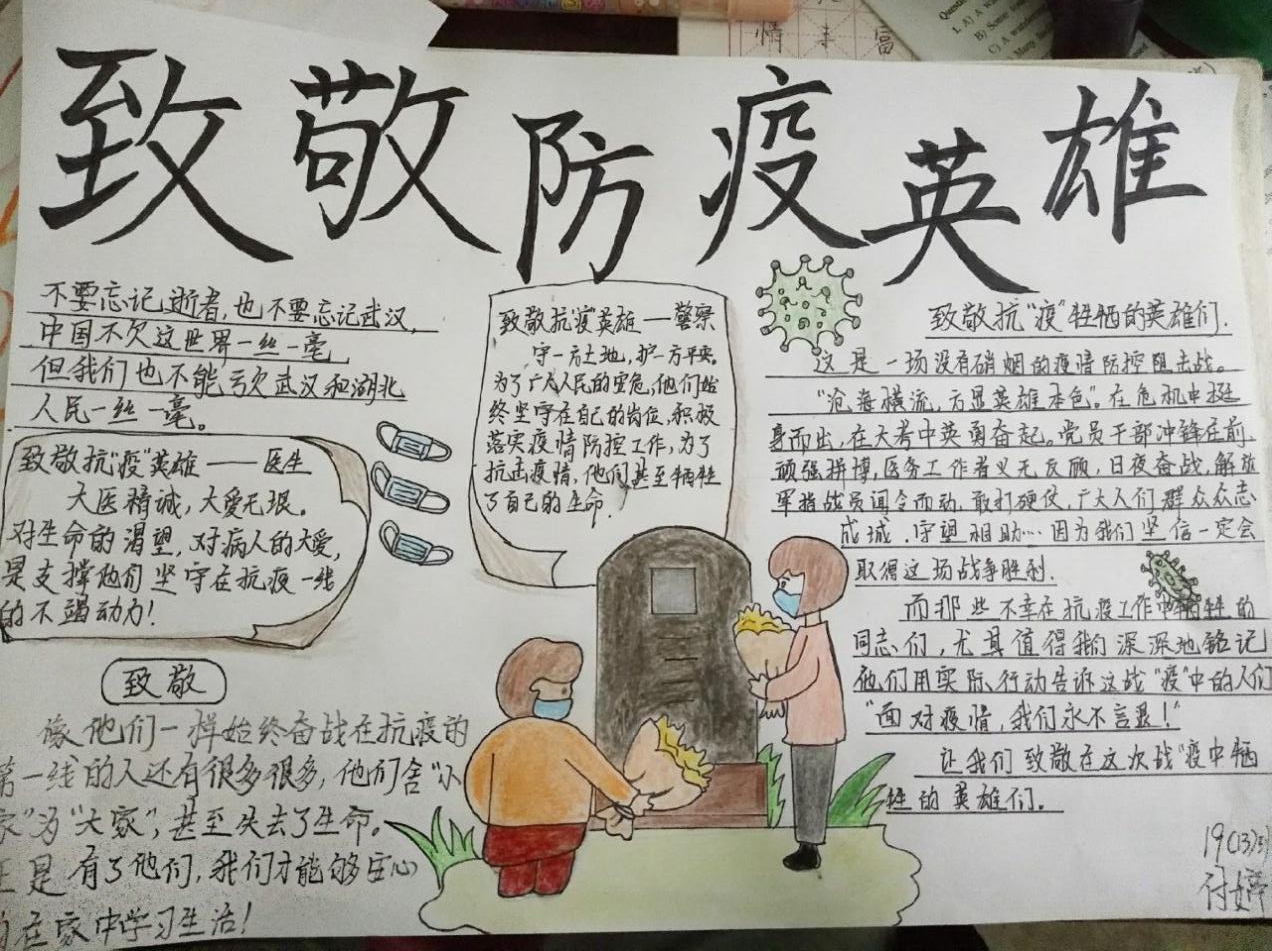 致敬防疫英雄
不要忘记逝者,也不要忘记武汉,
中国不欠这世界一丝一毫
但我们也不能亏欠武汉和湖北
人民一丝一毫。
致敬抗"疫"英雄——医生
大医精诚,大爱无垠。
对生命的渴望,对病人的大爱,
是支撑他们坚守在抗疫一线
的不竭动力!
致敬
像他们一样始终奋战在抗疫的
第一线的人还有很多很多,他们舍"小
家"为"大家",甚至失去了生命。
正是有了他们,我们才能够安心
的在家中学习生活!
致敬抗"疫"英雄——警察
守一方土地,护一方平安。
为了广大人民的安危,他们始
终坚守在自己的岗位,积极
落实疫情防控工作,为了
抗击疫情,他们甚至牺牲
了自己的生命!
致敬抗"疫"牺牲的英雄们.
这是一场没有硝烟的疫情防控阻击战。
"沧海横流,方显英雄本色"。在危机中挺
身而出,在大考中英勇奋起。党员干部冲锋在前,
顽强拼博,医务工作者义无反顾,日夜奋战,解放
军指战员闻令而动,敢打硬仗,广大人们群众众志
成城,守望相助…因为我们坚信一定会
取得这场战争胜利.
而那些不幸在抗疫工作中牺牲的
同志们,尤其值得我们深深地铭记
他们用实际行动告诉这战"疫"中的人们
"面对疫情,我们永不言退!"
让我们致敬在这次战"疫中牺
牲的英雄们。
情 丰 富